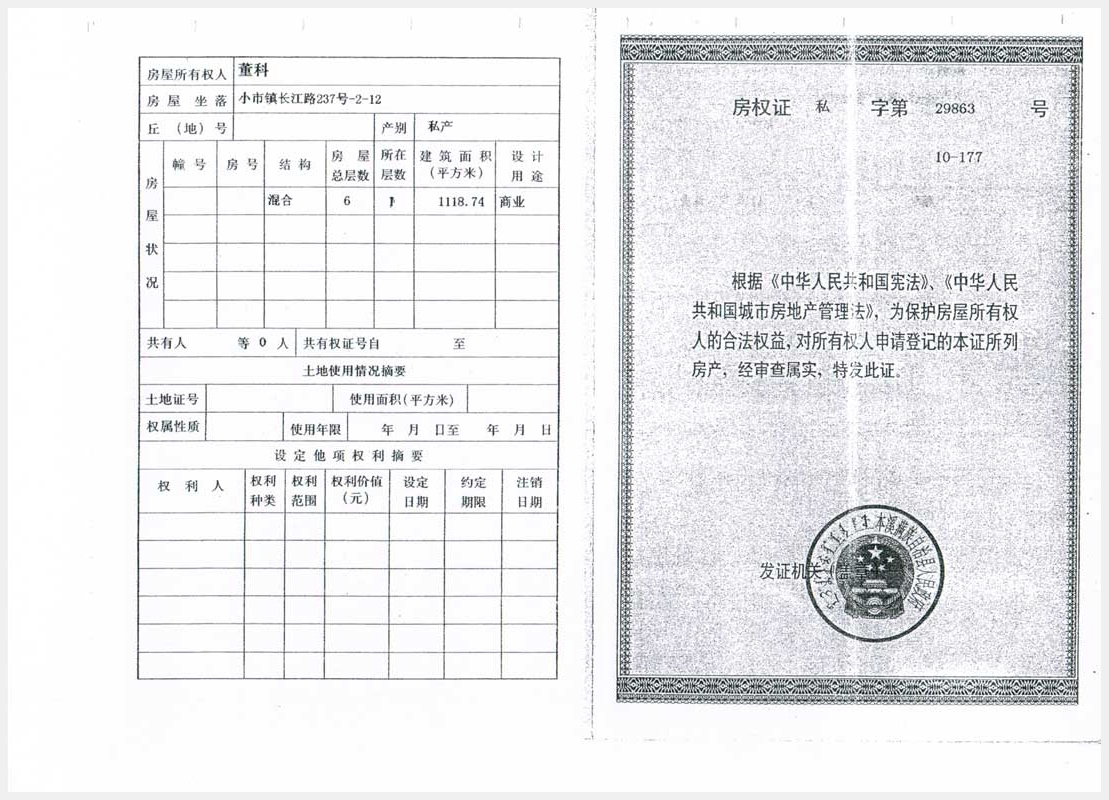 房屋所有权人 董科
房屋坐落 小市镇长江路237号-2-12
丘（地）号 产别 私产
房屋状况
幢号 房号 结构 房屋总层数 所在层数 建筑面积（平方米） 设计用途
混合 6 1 1118.74 商业
共有人 等 0 人 共有权证号自 至
土地使用情况摘要
土地证号 使用面积(平方米)
权属性质 使用年限 年 月 日至 年 月 日
设定他项权利摘要
权利人 权利种类 权利范围 权利价值（元） 设定日期 约定期限 注销日期
房权证 私 字第 29863 号
10-177
根据《中华人民共和国宪法》、《中华人民
共和国城市房地产管理法》，为保护房屋所有权
人的合法权益，对所有权人申请登记的本证所列
房产，经审查属实，特发此证。
发证机关
本溪满族自治县人民政府